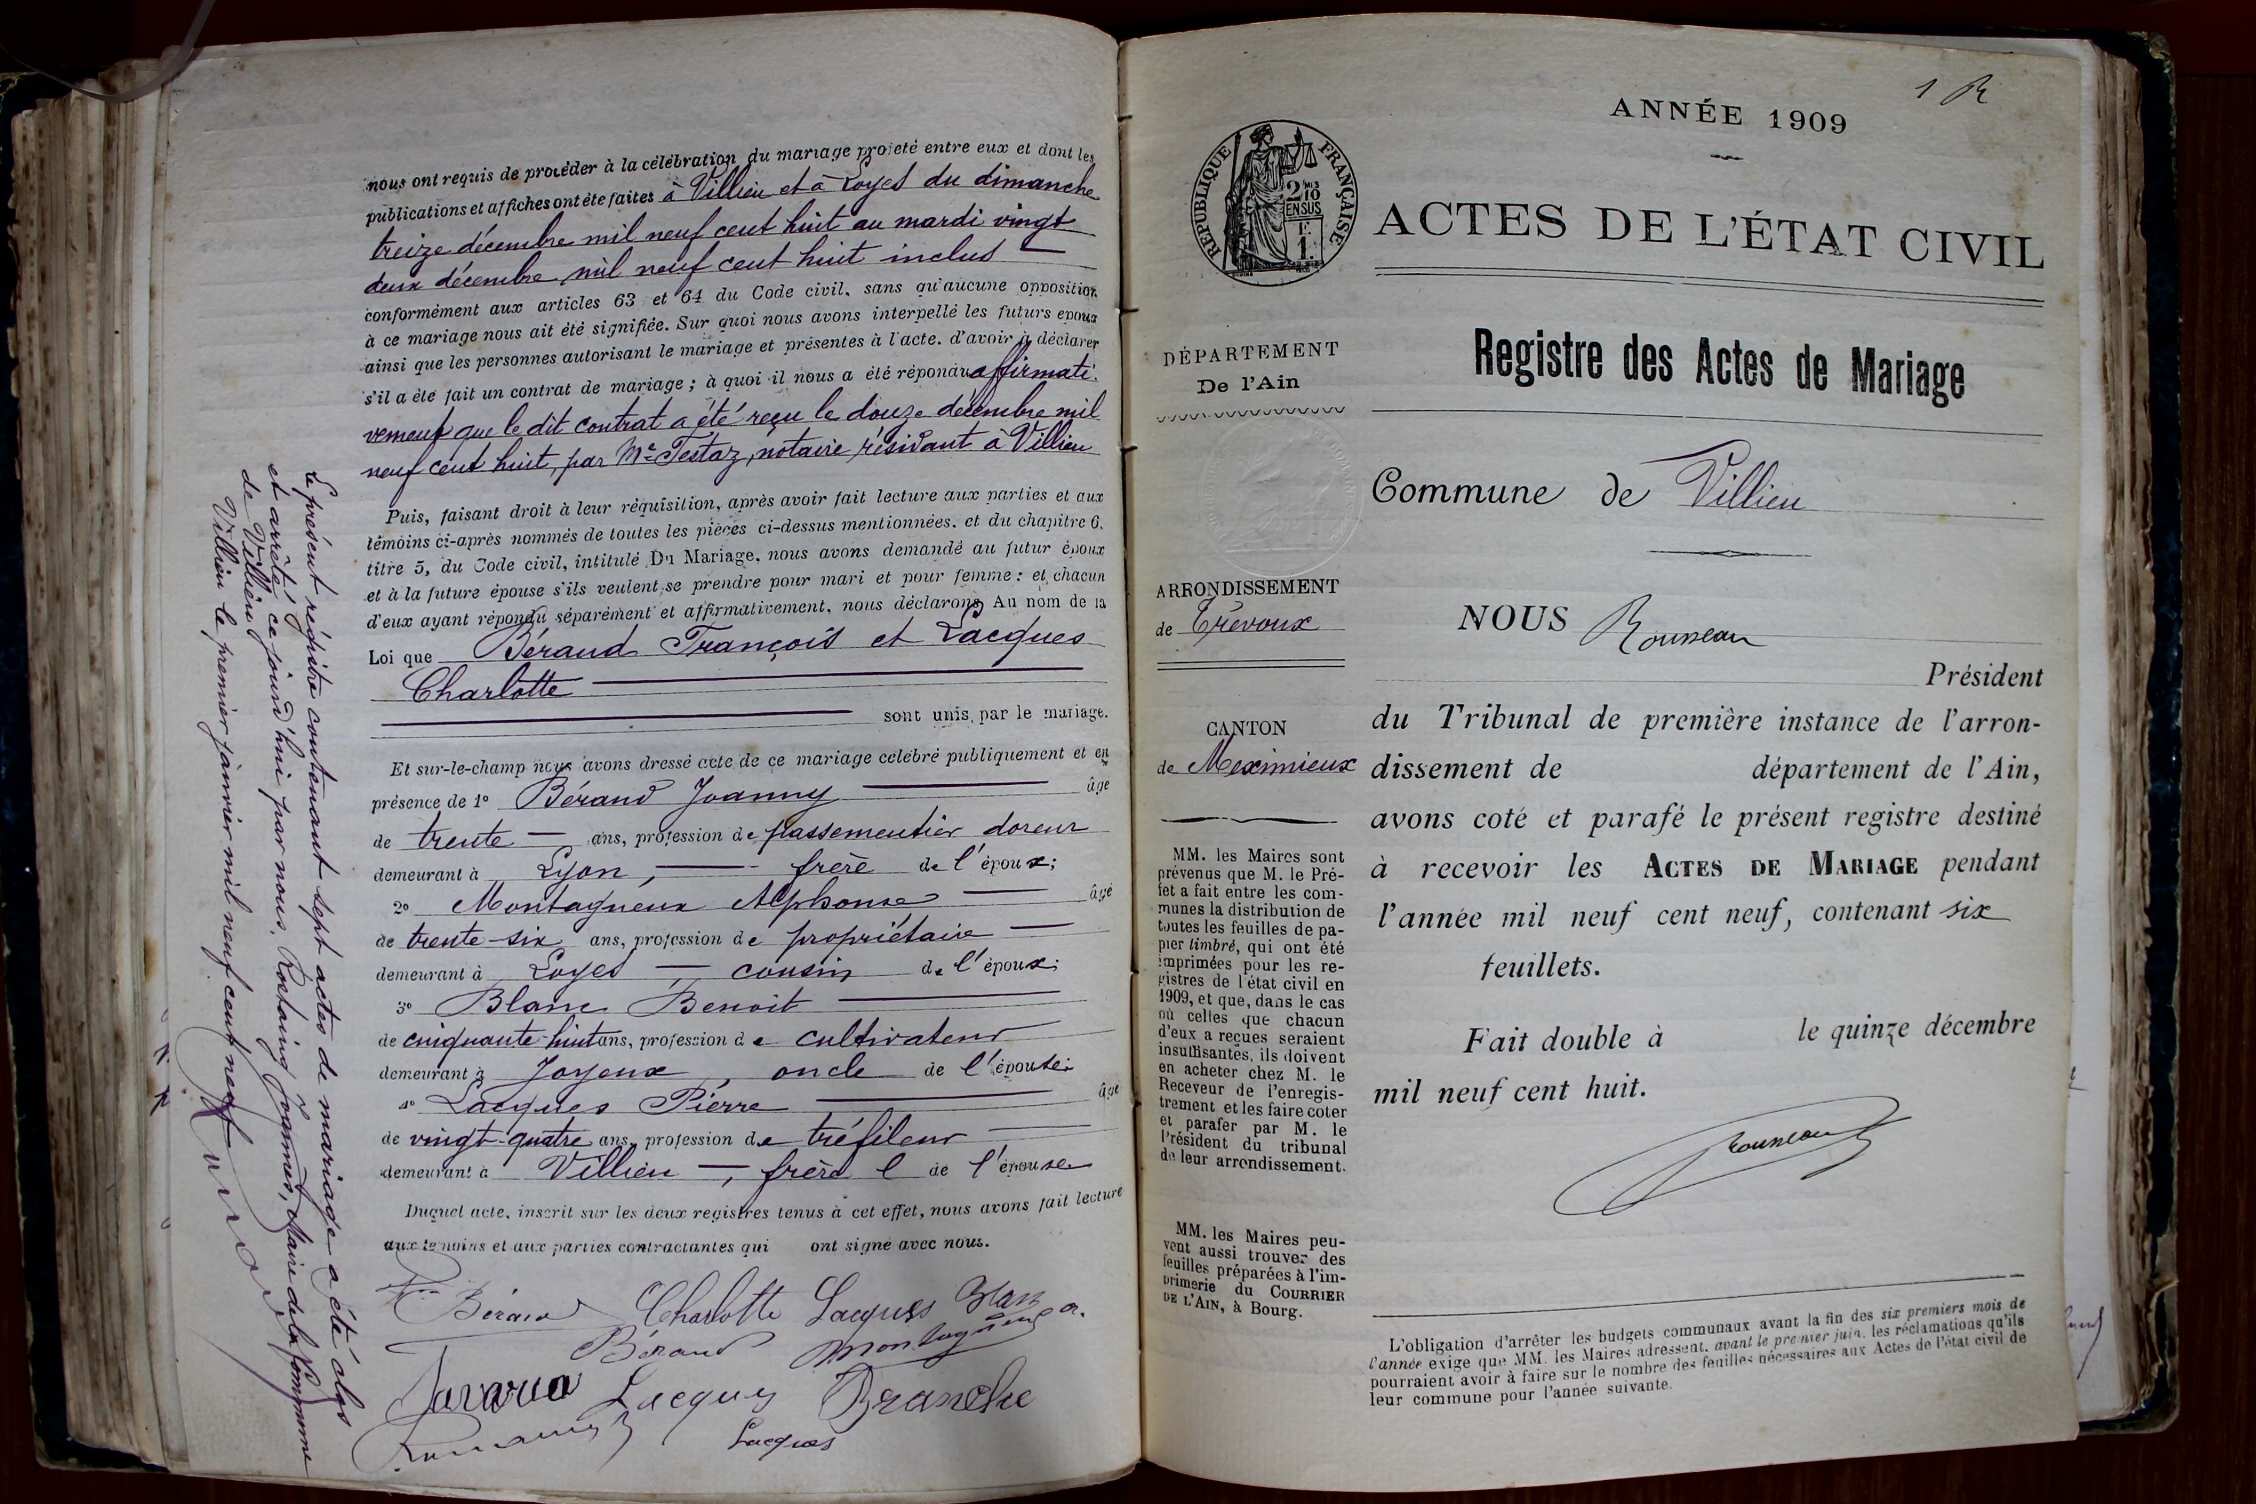 nous ont requis de procéder à la célébration du mariage projeté entre eux et dont les
publications et affiches ont été faites à Villieu et à Loyes du dimanche
treize décembre mil neuf cent huit au mardi vingt
deux décembre mil neuf cent huit inclus
conformément aux articles 63 et 64 du Code civil, sans qu'aucune opposition
à ce mariage nous ait été signifiée. Sur quoi nous avons interpellé les futurs époux
ainsi que les personnes autorisant le mariage et présentes à l'acte, d'avoir à déclarer
s'il a été fait un contrat de mariage ; à quoi il nous a été répondu affirmati-
vement que le dit contrat a été reçu le douze décembre mil
neuf cent huit, par Me Testaz, notaire résidant à Villieu
Puis, faisant droit à leur réquisition, après avoir fait lecture aux parties et aux
témoins ci-après nommés de toutes les pièces ci-dessus mentionnées, et du chapitre 6,
titre 5, du Code civil, intitulé Du Mariage, nous avons demandé au futur époux
et à la future épouse s'ils veulent se prendre pour mari et pour femme : et chacun
d'eux ayant répondu séparément et affirmativement, nous déclarons Au nom de la
Loi que Béraud François et Lacques
Charlotte
sont unis par le mariage.
Et sur-le-champ nous avons dressé acte de ce mariage célébré publiquement et en
présence de 1° Béraud Joanny âgé
de trente ans, profession de passementier doreur
demeurant à Lyon, frère de l'époux;
2° Montagneux Alphonse âgé
de trente-six ans, profession de propriétaire
demeurant à Loyes cousin de l'époux;
3° Blanc Benoit
de cinquante-huit ans, profession de cultivateur
demeurant à Joyeux, oncle de l'épouse;
4° Lacques Pierre âgé
de vingt-quatre ans, profession de tréfileur
demeurant à Villieu, frère de l'épouse
Duquel acte, inscrit sur les deux registres tenus à cet effet, nous avons fait lecture
aux témoins et aux parties contractantes qui ont signé avec nous.
Béraud Charlotte Lacques Blanc
Béraud Montagneux a.
Lacques Branche
Lacques
Le présent régistre contenant sept actes de mariage a été clos
et arrêté ce jourd'hui par nous, Rostaing Joannès, Maire de la commune
de Villieu
Villieu le premier janvier mil neuf cent neuf
1 R
ANNÉE 1909
ACTES DE L'ÉTAT CIVIL
RÉPUBLIQUE FRANÇAISE
2/10
EN SUS
1F.
DÉPARTEMENT
De l'Ain
Registre des Actes de Mariage
Commune de Villieu
ARRONDISSEMENT
de Trévoux
CANTON
de Meximieux
MM. les Maires sont
prévenus que M. le Pré-
fet a fait entre les com-
munes la distribution de
toutes les feuilles de pa-
pier timbré, qui ont été
imprimées pour les re-
gistres de l'état civil en
1909, et que, dans le cas
où celles que chacun
d'eux a reçues seraient
insuffisantes, ils doivent
en acheter chez M. le
Receveur de l'enregis-
trement et les faire coter
et parafer par M. le
Président du tribunal
de leur arrondissement.
MM. les Maires peu-
vent aussi trouver des
feuilles préparées à l'im-
primerie du COURRIER
DE L'AIN, à Bourg.
NOUS Rousseau
Président
du Tribunal de première instance de l'arron-
dissement de département de l'Ain,
avons coté et parafé le présent registre destiné
à recevoir les ACTES DE MARIAGE pendant
l'année mil neuf cent neuf, contenant six
feuillets.
Fait double à le quinze décembre
mil neuf cent huit.
Rousseau
L'obligation d'arrêter les budgets communaux avant la fin des six premiers mois de
l'année exige que MM. les Maires adressent, avant le premier juin, les réclamations qu'ils
pourraient avoir à faire sur le nombre des feuilles nécessaires aux Actes de l'état civil de
leur commune pour l'année suivante.